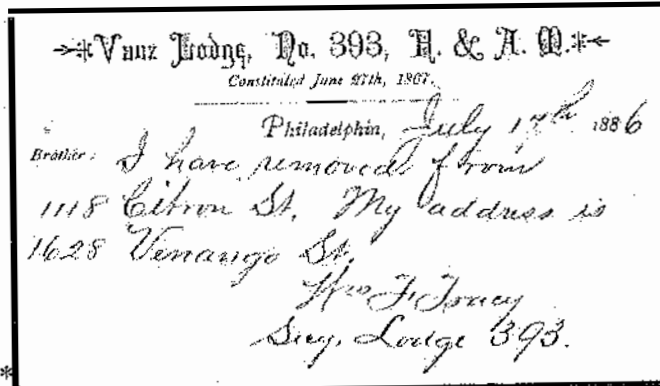 Vaux Lodge, No. 393, F. & A. M.
Constituted June 27th, 1867.
Philadelphia, July 17th 1886
Brother: I have removed from
1118 Citron St. My address is
1628 Venango St.
Wm F.
Secy. Lodge 393.